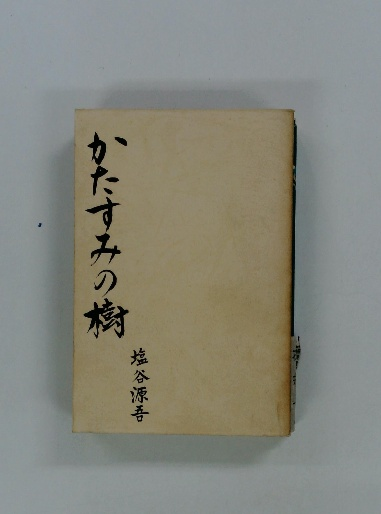 かたすみの樹
塩谷源吾